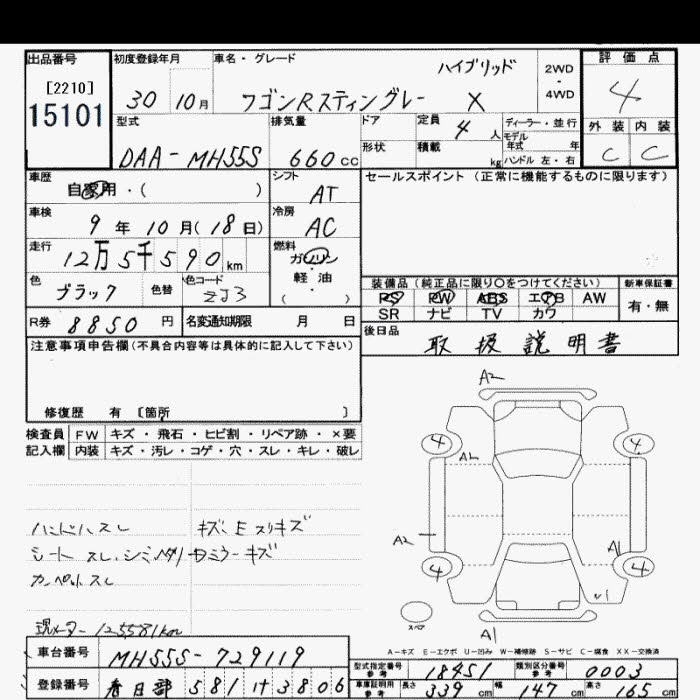 出品番号 初度登録年月 車名・グレード ハイブリッド 2WD・4WD 評価点
[2210]
15101
30 10月 ワゴンRスティングレー X 4
型式 排気量 ドア 定員 4人 ディーラー・並行 外装 内装
形状 積載 kg モデル年式 年 ハンドル 左・右
DAA-MH55S 660cc C C
車歴 自家用・( ) シフト AT セールスポイント(正常に機能するものに限ります)
車検 9年10月(18日) 冷房 AC
走行 12万5千590km 燃料 ガソリン
軽・油
( )
色 ブラック 色替 色コード ZJ3
装備品(純正品に限り○をつけてください) 新車保証書
PS PW ABS エアB AW 有・無
SR ナビ TV カワ
R券 8850円 名変通知期限 月 日
後日品 取扱説明書
注意事項申告欄(不具合内容等は具体的に記入して下さい)
修復歴 有 [箇所 ]
検査員 FW キズ・飛石・ヒビ割・リペア跡・×要
記入欄 内装 キズ・汚レ・コゲ・穴・スレ・キレ・破レ
A2
4 4
A2
A2 A1
4 4
U1
スペア
A1
ハンドルスレ キズ、Eスリキズ
シート スレ、シミ
ミラーキズ
カーペットスレ
現メーター 125581km
A-キズ E-エクボ U-凹み W-補修跡 S-サビ C-腐食 XX-交換済
車台番号 MH55S-729119
型式指定番号 参考 18451 類別区分番号 参考 0003
登録番号 春日部 581 け 3806
車庫証明用 参考 長さ 339cm 幅 147cm 高さ 165cm